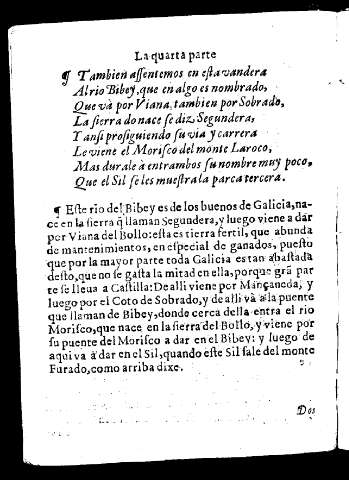 La quarta parte
¶ Tambien assentemos en esta vandera
Al rio Bibey, que en algo es nombrado,
Que và por Viana, tambien por Sobrado,
La sierra do nace se diz Segundera,
Y ansi prosiguiendo su via y carrera
Le viene el Morisco del monte Laroco,
Mas durale à entrambos su nombre muy poco,
Que el Sil se les muestra la parca tercera.
¶ Este rio del Bibey es de los buenos de Galicia, na-
ce en la sierra q̃ llaman Segundera, y luego viene a dar
por Viana del Bollo: esta es tierra fertil, que abunda
de mantenimientos, en especial de ganados, puesto
que por la mayor parte toda Galicia es tan abastada
desto, que no se gasta la mitad en ella, porque grã par
te se lleua a Castilla: De alli viene por Mançaneda, y
luego por el Coto de Sobrado, y de alli và a la puente
que llaman de Bibey, donde cerca della entra el rio
Morisco, que nace en la sierra del Bollo, y viene por
su puente del Morisco a dar en el Bibey: y luego de
aqui va à dar en el Sil, quando este Sil sale del monte
Furado, como arriba dixe.
Dos